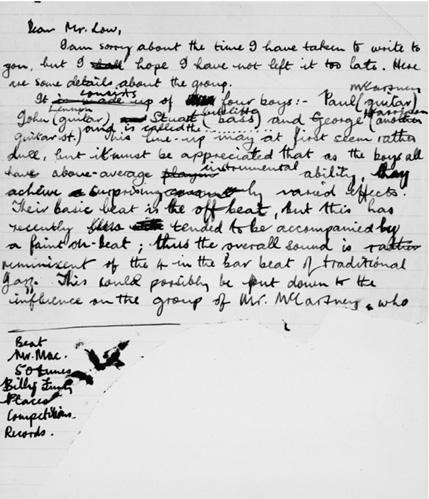 Dear Mr. Low,
I am sorry about the time I have taken to write to
you, but I hope I have not left it too late. Here
are some details about the group.
consists McCartney
It is made up of four boys:- Paul (guitar)
Lennon Sutcliffe Harrison
John (guitar) Stuart bass) and George (another
and is called the...
guitarist.) This line-up may at first seem rather
dull, but it must be appreciated that as the boys all
instrumental
have above-average ability, they
achieve surprisingly varied effects.
Their basic beat is the off beat, but this has
recently tended to be accompanied by
a faint on-beat; thus the overall sound is rather
reminiscent of the 4 in the bar beat of traditional
jazz. This could possibly be put down to the
influence on the group of Mr. McCartney, who
Beat
Mr. Mac.
50 tunes
Billy Fury
Places
Competitions
Records.